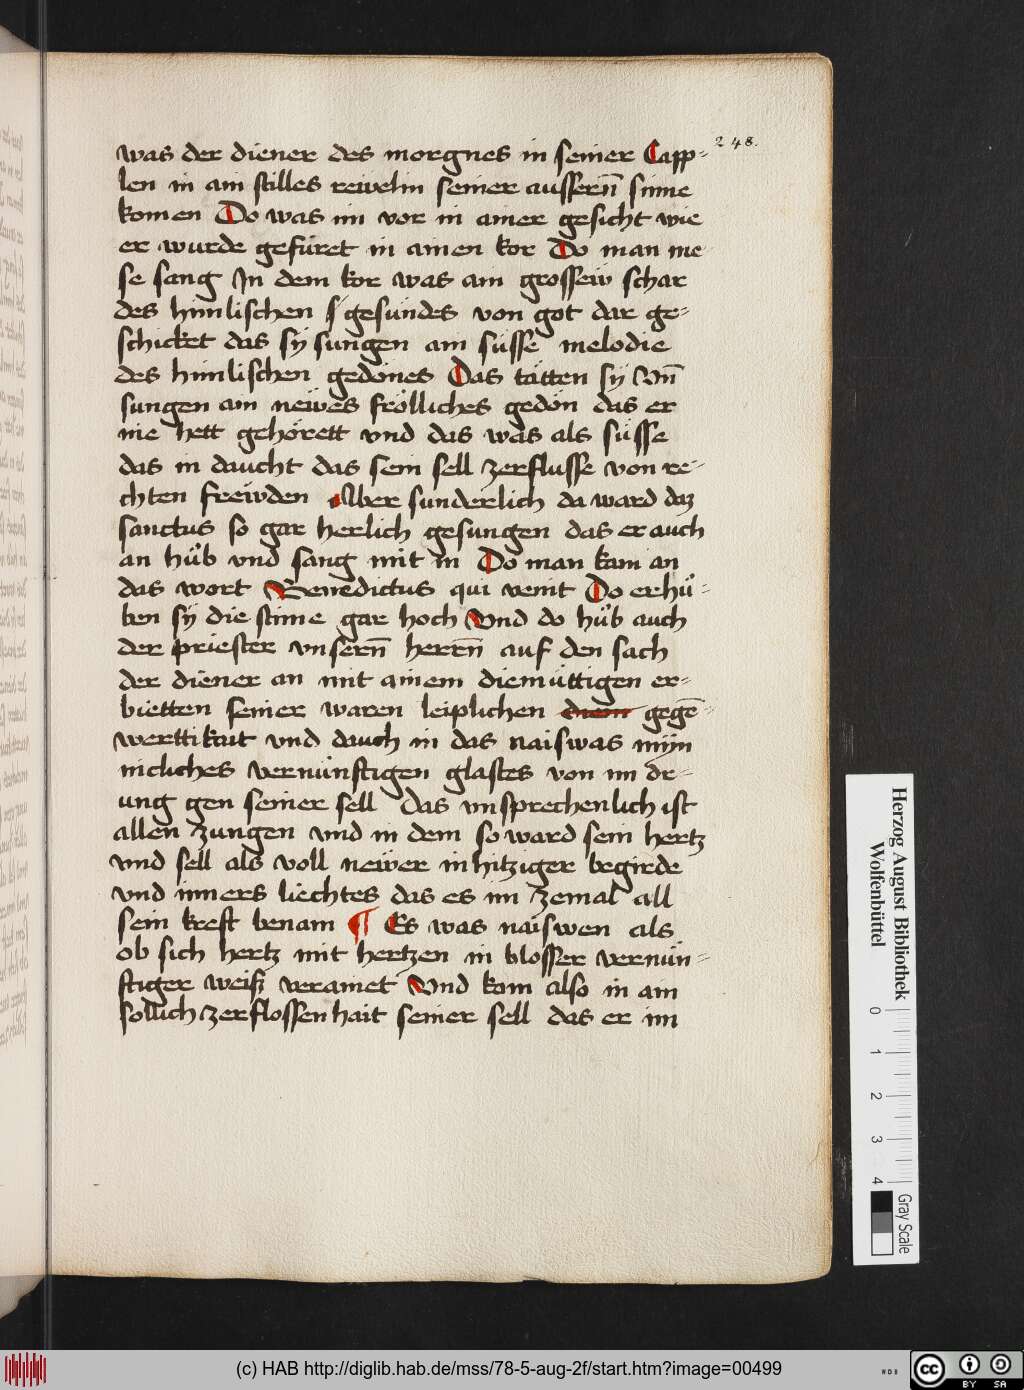 248.
was der diener des morgnes in seiner Capp-
len in ain stilles rewelin seiner aussern̄ sinne
komen Do was im vor in ainer gesicht wie
er wurde gefüret in ainen kor Do man me
se sang In dem kor was ain grossew schar
des himlischen gesündes von got dar ge-
schicket das sÿ sungen ain süsse melodie
des himlischen gedönes Das tätten sÿ Vnn̄
sungen ain newes frölliches gedön das er
nie hett gehörett vnd das was als süsse
das in daucht das sein sell zerflusse von re-
chten frewden Aber sunderlich da ward daz
sanctus so gar herlich gesungen das er auch
an hůb vnd sang mit in Do man kam an
das wort Benedictus qui venit Do erhů-
ben sÿ die stime gar hoch Vnd do hůb auch
der priester vnsern̄ herrn̄ auf den sach
der diener an mit ainem diemüttigen er-
bietten seiner waren leiplichen gegē-
werttikait vnd dauch in das naiswas mÿn
nicliches vernünftigen glastes von im dr-
ung gen seiner sell das vnsprechenlich ist
allen zungen vnd in dem so ward sein hertz
vnd sell als voll newer inhitziger begirde
vnd inners liechtes das es im zemal all
sein kreft benam ¶ Es was naiswen als
ob sich hertz mit hertzen in blosser vernün-
ftiger weisz verainet Vnd kam also in ain
sollich zerflossenhait seiner sell das er im
Herzog August Bibliothek
Wolfenbüttel
0 1 2 3 4
Gray Scale
(c) HAB http://diglib.hab.de/mss/78-5-aug-2f/start.htm?image=00499
cc BY SA